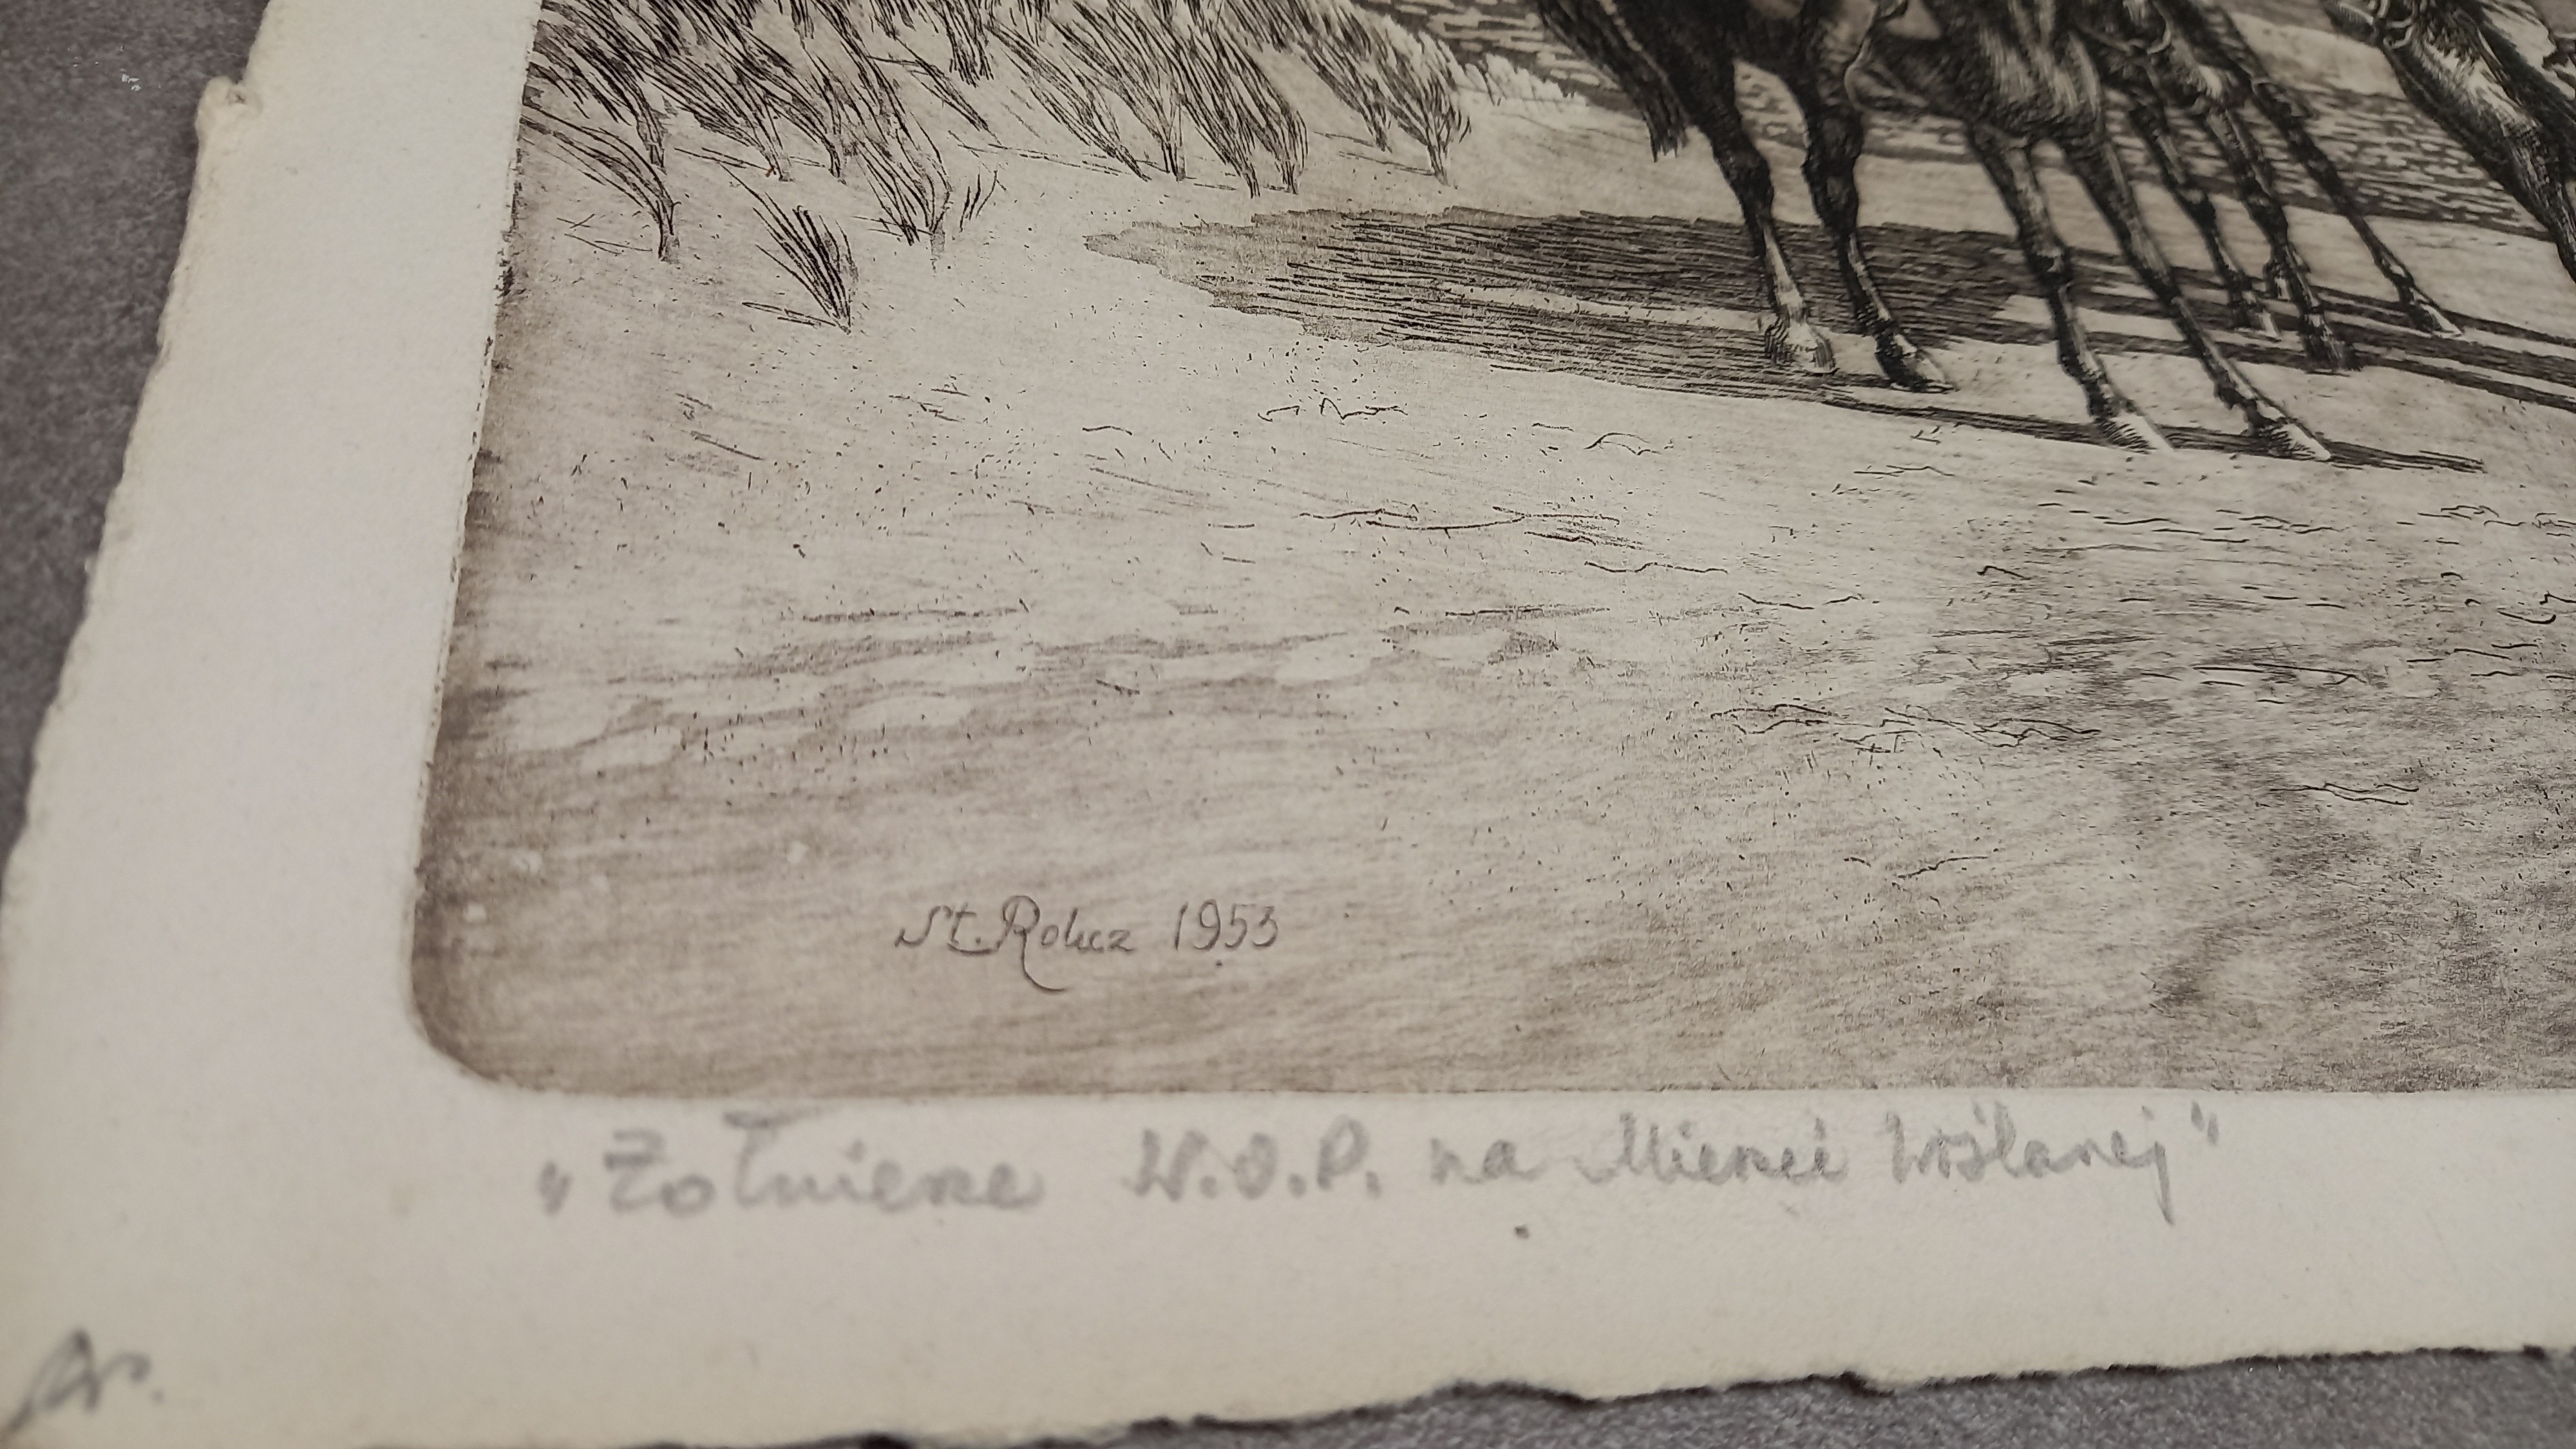 St. Rolicz 1953
"Żołnierze W.O.P. na Mierzei Wiślanej"